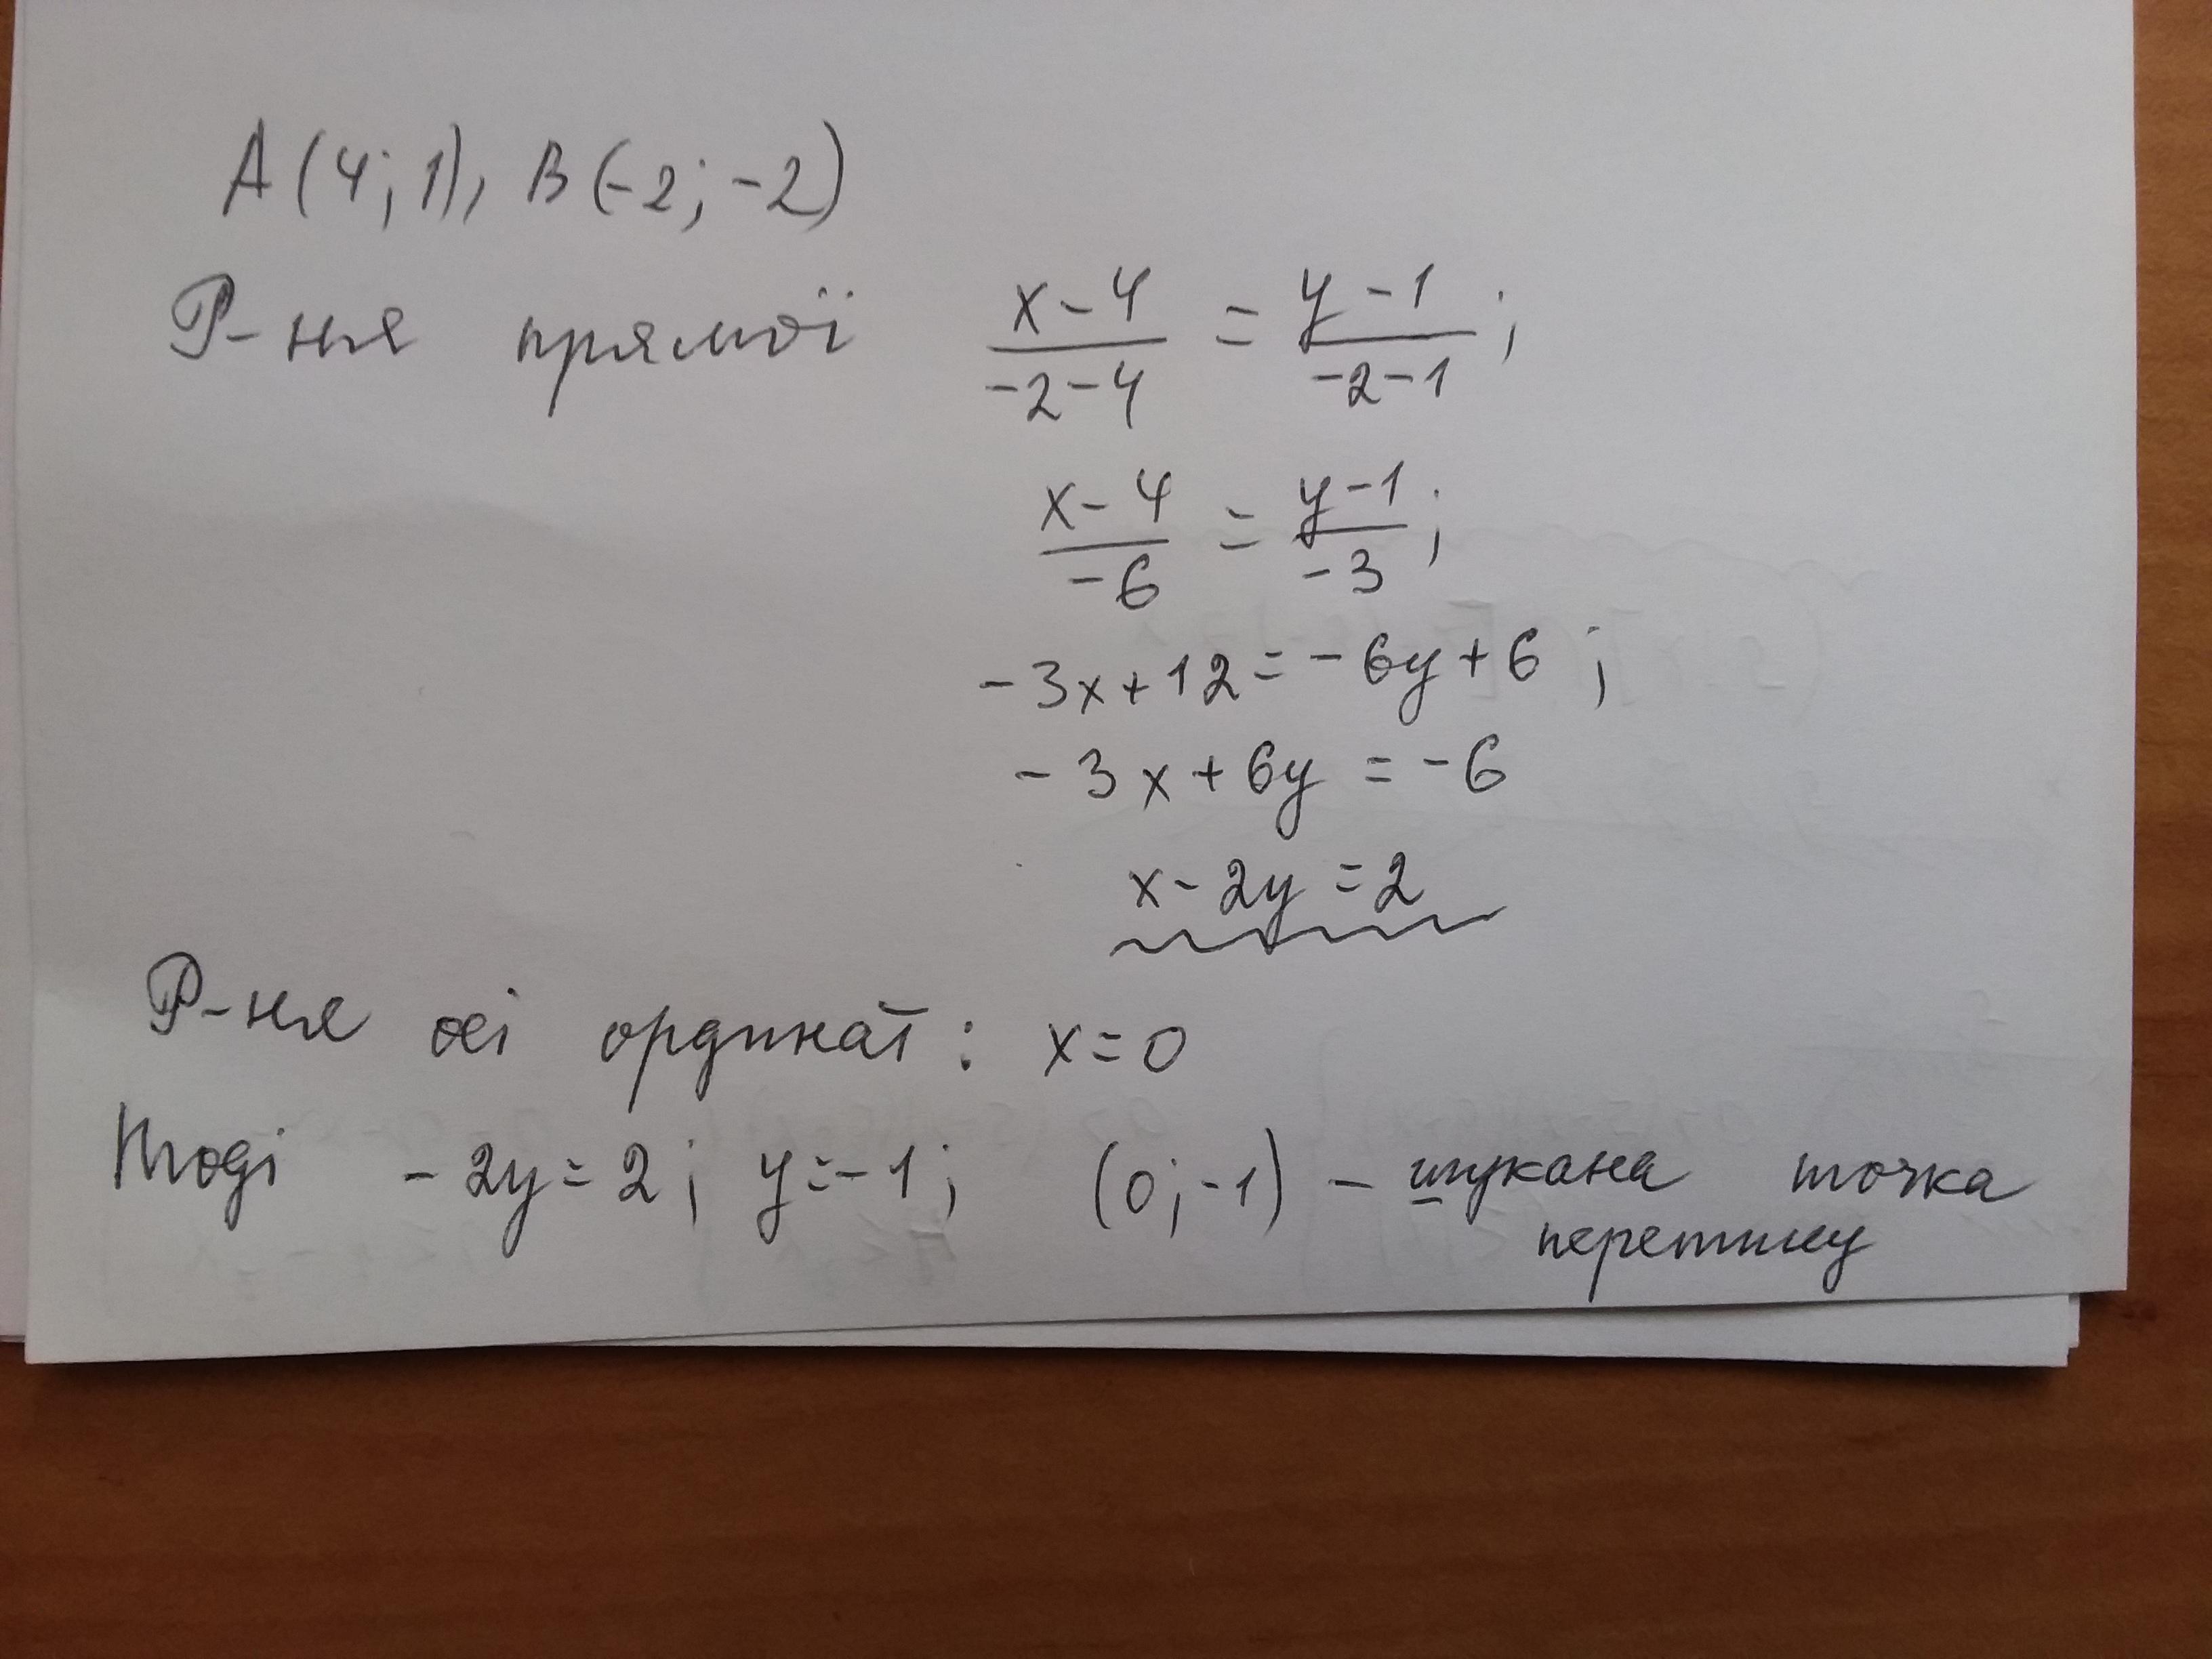 A(4;1), B(-2;-2)
Р-ня прямої (x-4)/(-2-4) = (y-1)/(-2-1);
(x-4)/(-6) = (y-1)/(-3);
-3x+12=-6y+6;
-3x+6y=-6
x-2y=2
Р-ня осі ординат: x=0
Тоді -2y=2; y=-1; (0;-1) – шукана точка
перетину